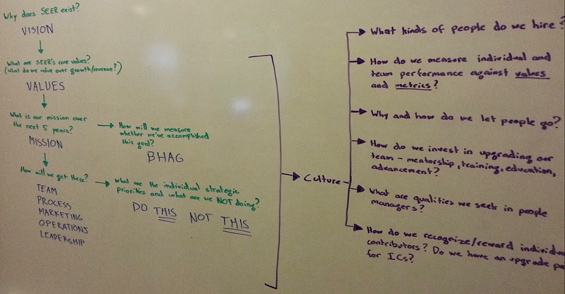 Why does SEER exist?
VISION
What are SEER's core values?
(What do we value over growth/revenue?)
VALUES
What is our mission over
the next 5 years?
MISSION
How will we measure
whether we've accomplished
this goal?
BHAG
How will we get there?
TEAM
PROCESS
MARKETING
OPERATIONS
LEADERSHIP
What are the individual strategic
priorities and what are we NOT doing?
DO THIS NOT THIS
Culture
What kinds of people do we hire?
How do we measure individual and
team performance against values
and metrics?
Why and how do we let people go?
How do we invest in upgrading our
team - mentorship, training, education,
advancement?
What are qualities we seek in people
managers?
How do we recognize/reward individual
contributors? Do we have an upgrade
for ICs?